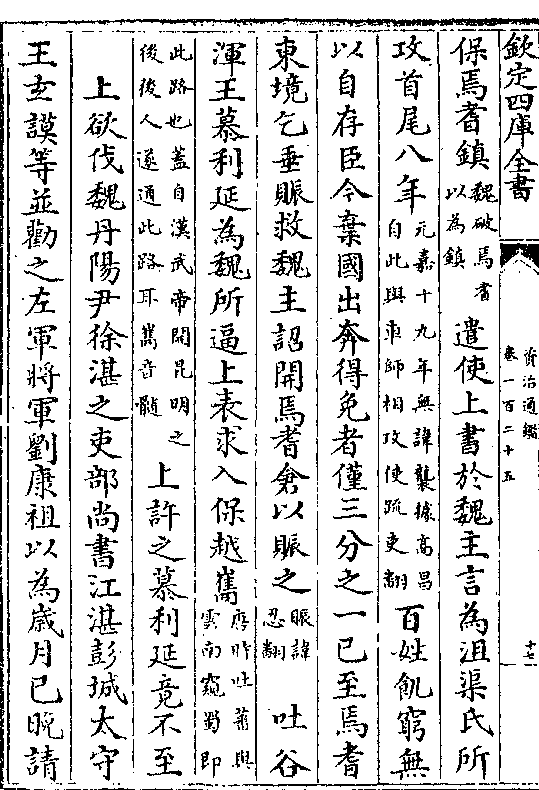 欽定四庫全書
資治通鑑
卷一百二十五
十七
保焉耆鎮魏破焉耆以為鎮遣使上書於魏主言為沮渠氏所
攻首尾八年元嘉十九年無諱襲據高昌自此與車師相攻使疏吏翻百姓飢窮無
以自存臣今棄國出奔得免者僅三分之一已至焉耆
東境乞垂賑救魏主詔開焉耆倉以賑之賑諱忍翻吐谷
渾王慕利延為魏所逼上表求入保越巂唐時吐蕃與雲南窺蜀即
此路也蓋自漢武帝開昆明之後後人遂通此路耳巂音髓上許之慕利延竟不至
上欲伐魏丹陽尹徐湛之吏部尚書江湛彭城太守
王玄謨等並勸之左軍將軍劉康祖以為歲月已晚請